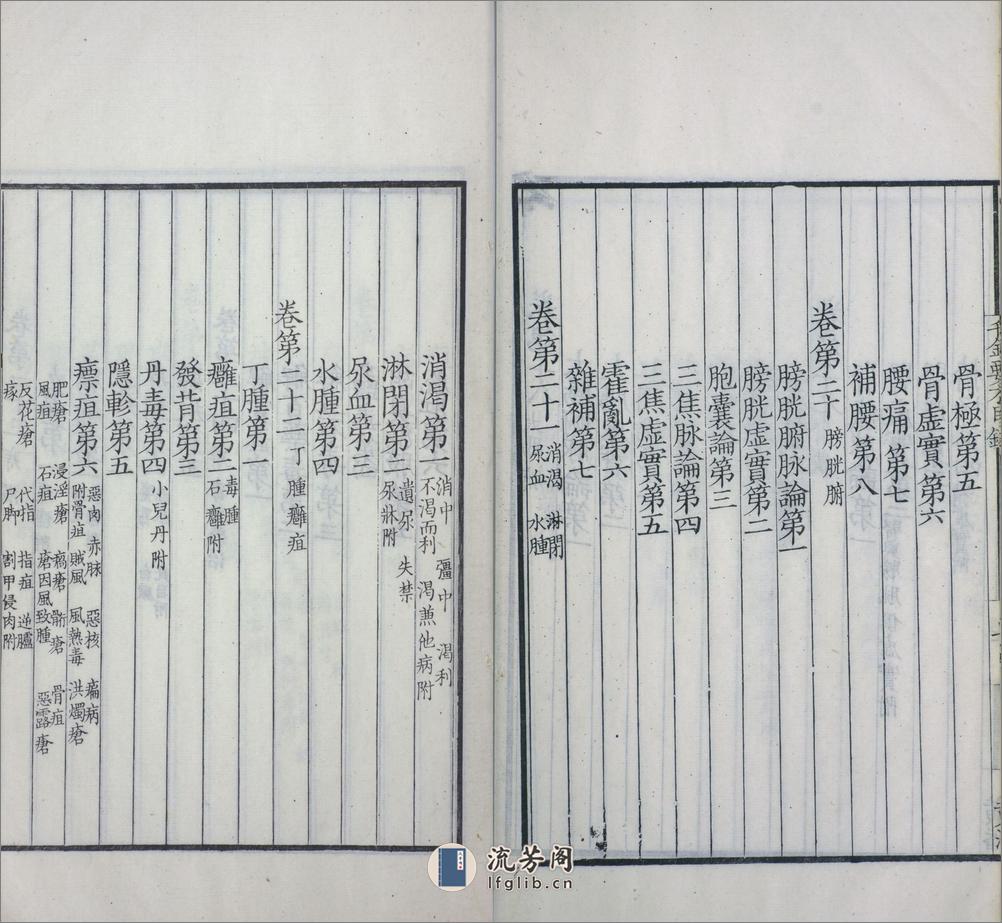 骨極第五
骨虛實第六
腰痛第七
補腰第八
卷第二十 膀胱腑
膀胱腑脉論第一
膀胱虛實第二
胞囊論第三
三焦脉論第四
三焦虛實第五
霍亂第六
雜補第七
卷第二十一 消渴 淋閉 尿血 水腫
消渴第一 消中 彊中 渴利 不渴而利 渴兼他病附
淋閉第二 遺尿 失禁 尿牀附
尿血第三
水腫第四
卷第二十二 丁腫 癰疽
丁腫第一
癰疽第二 毒腫 石癰附
發背第三
丹毒第四 小兒丹附
隱軫第五
瘭疽第六 惡肉 赤脉 惡核 瘑病 附骨疽 賊風 風熱毒 洪燭瘡
肥瘡 浸淫瘡 瘑瘡 䯒瘡 骨疽 風疽 石疽 瘡因風致腫 惡露瘡
反花瘡 代指 指疽 逆臚
瘃 尸脚 割甲侵肉附
流芳阁
lfglib.cn